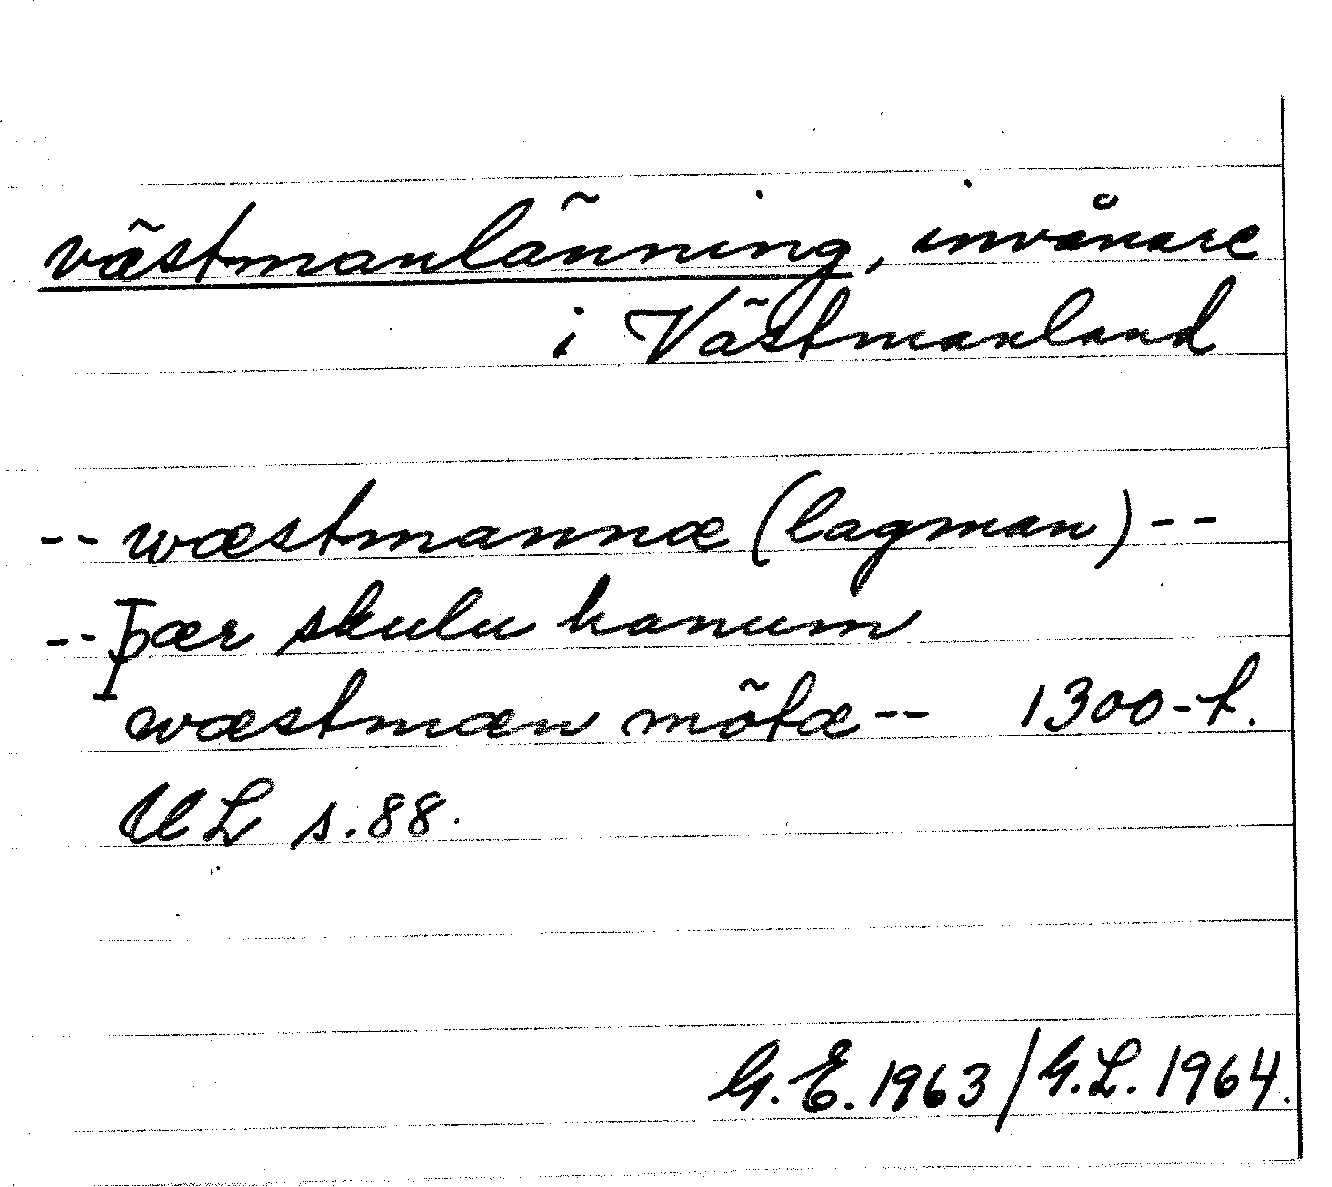 västmanlänning, invånare
i Västmanland
-- wæstmannæ (lagman) --
-- Þær skulu hanum
wæstmæn mötæ -- 1300-t.
UL s. 88.
G. E. 1963/G. L. 1964.